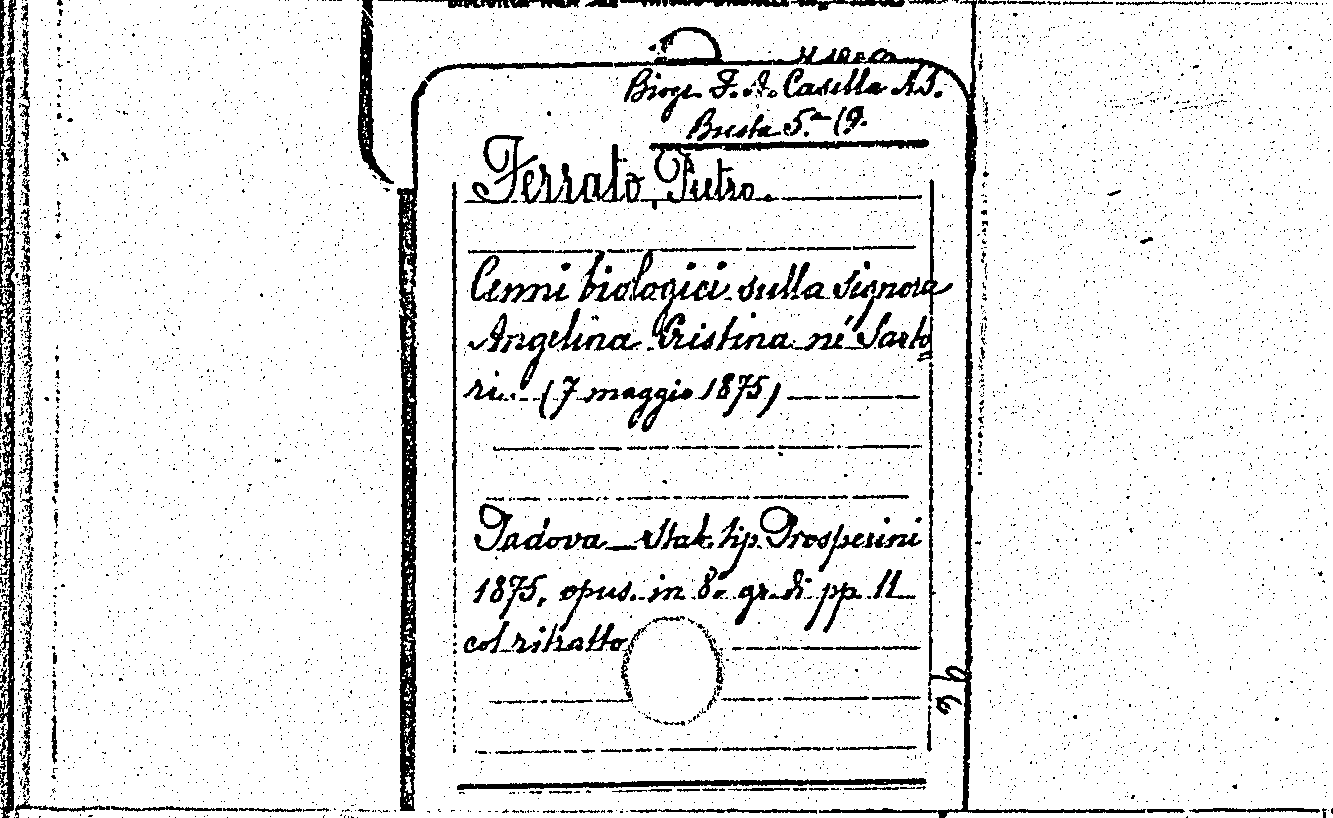 Biogr. F. A. Casella A.J.
Busta 5.a 19.
Ferrato, Pietro.
Cenni biologici sulla signora
Angelina Cristina né Sarto
ri. (7 maggio 1875)
Padova Stab. tip. Prosperini
1875, opus. in 8.o gr. di pp. 11
col ritratto